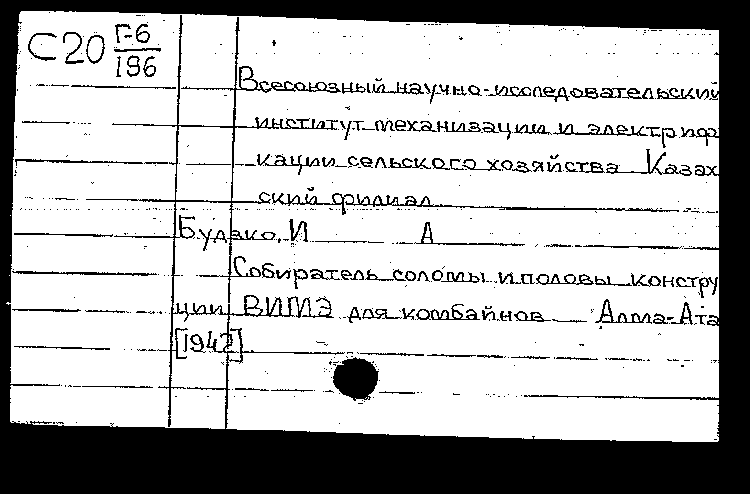 С20 Г-6
196
Всесоюзный научно-исследовательский
институт механизации и электриф
кации сельского хозяйства Казах
ский филиал
Будзко, И А
Собиратель соломы и половы констру
ции ВИМЭ для комбайнов Алма-Ата
[1942]